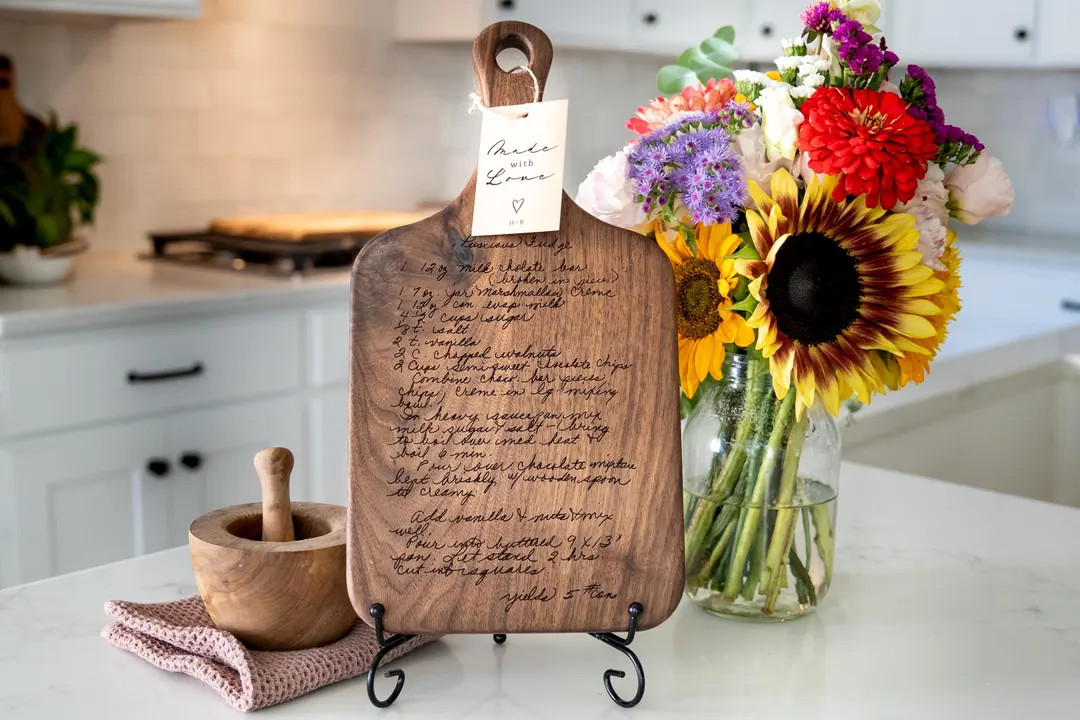 Made
with
Love
Luscious Fudge
1 12 oz milk cholate bar
(broken in pieces)
1 7 oz jar Marshmallow Creme
1 12 oz can evap milk
4 ½ cups sugar
t. salt
2 t. vanilla
2 C. chopped walnuts
2 Cups semi-sweet chocolate chips
Combine choc. bar pieces,
chips, creme in lg. mixing
bowl.
In heavy saucepan mix
milk sugar & salt - bring
to boil over med heat &
boil 6 min.
Pour over chocolate mixture
beat briskly w/ wooden spoon
til creamy.
Add vanilla & nuts & mix
well.
Pour into buttered 9 X 13"
pan. Let stand 2 hrs.
Cut into squares
yields 5 #